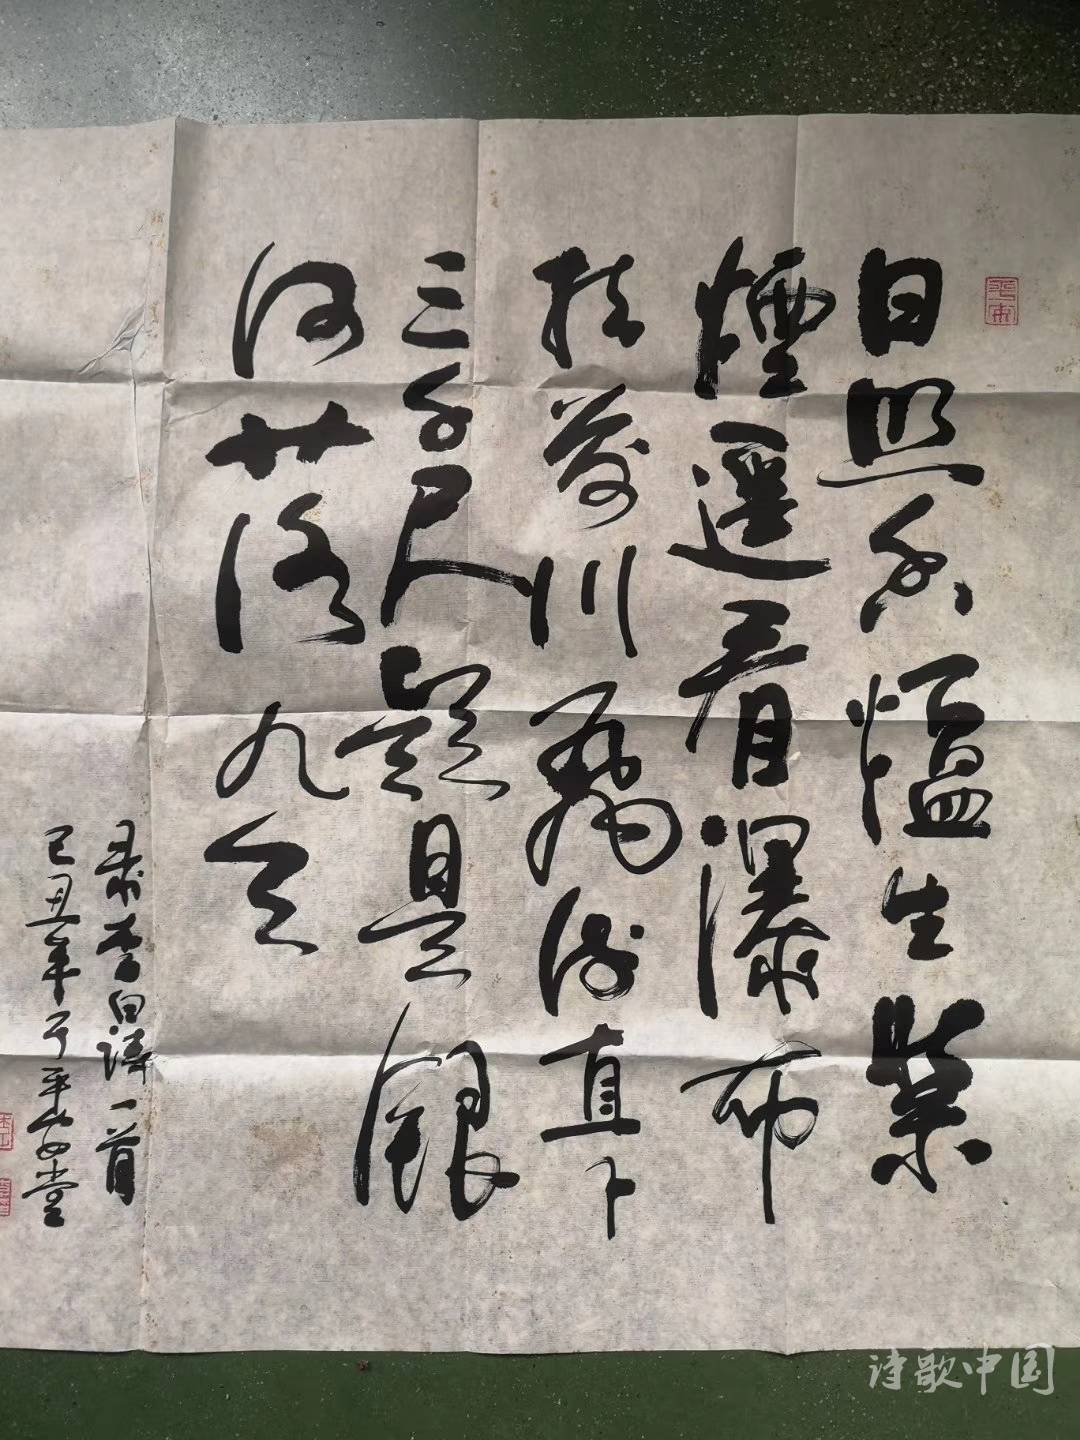 日照香爐生紫
煙遥看瀑布
挂前川飛流直下
三千尺疑是銀
河落九天
录李白詩一首
己丑年于平安堂
诗歌中国